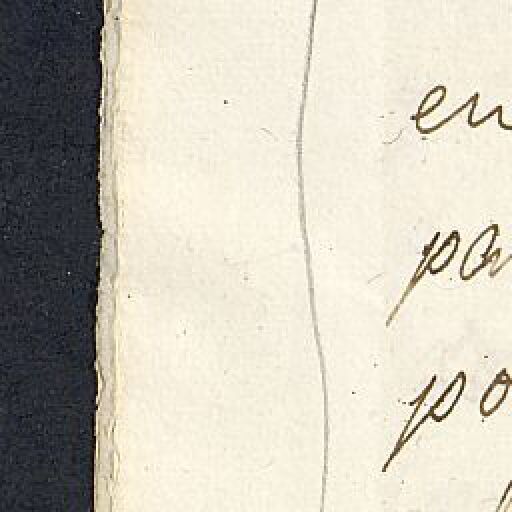 en
pa
po